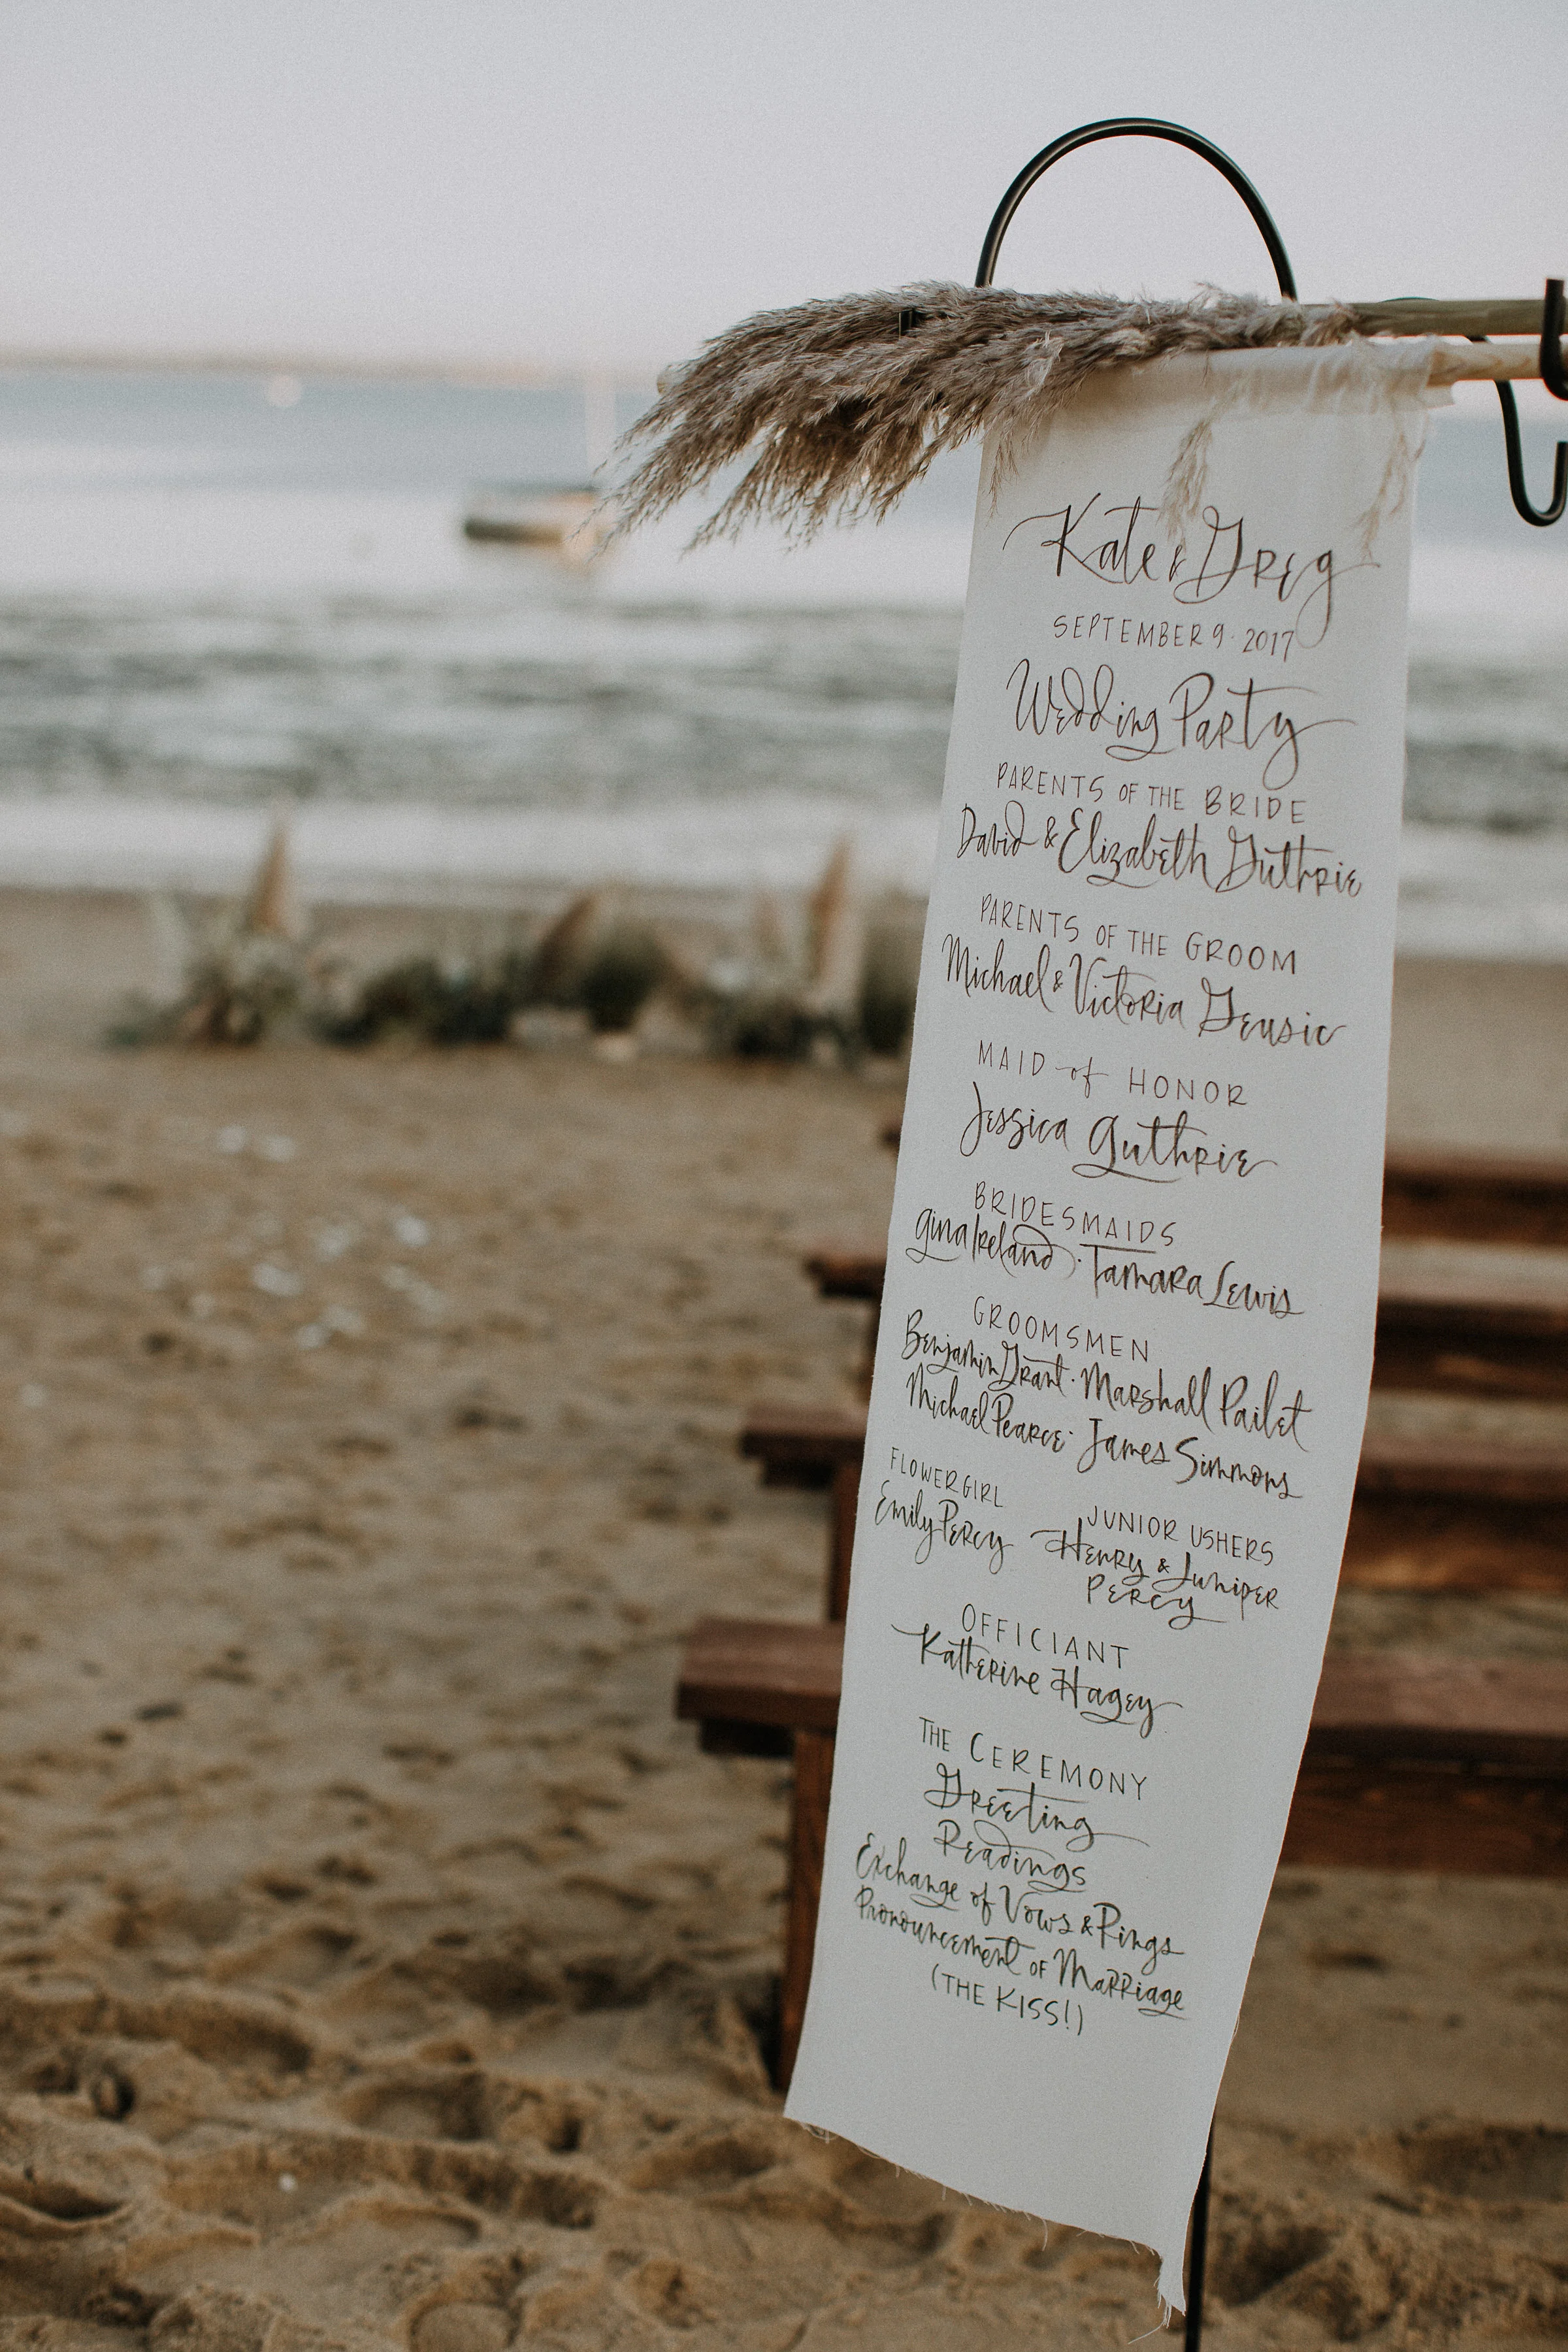 Kate & Greg
SEPTEMBER 9 · 2017
Wedding Party
PARENTS OF THE BRIDE
David & Elizabeth Guthrie
PARENTS OF THE GROOM
Michael & Victoria Geusic
MAID of HONOR
Jessica Guthrie
BRIDESMAIDS
Gina Ireland · Tamara Lewis
GROOMSMEN
Benjamin Grant · Marshall Pailet
Michael Pearce · James Simmons
FLOWER GIRL
Emily Percy
JUNIOR USHERS
Henry & Juniper
Percy
OFFICIANT
Katherine Hagey
THE CEREMONY
Greeting
Readings
Exchange of Vows & Rings
Pronouncement of Marriage
(THE KISS!)